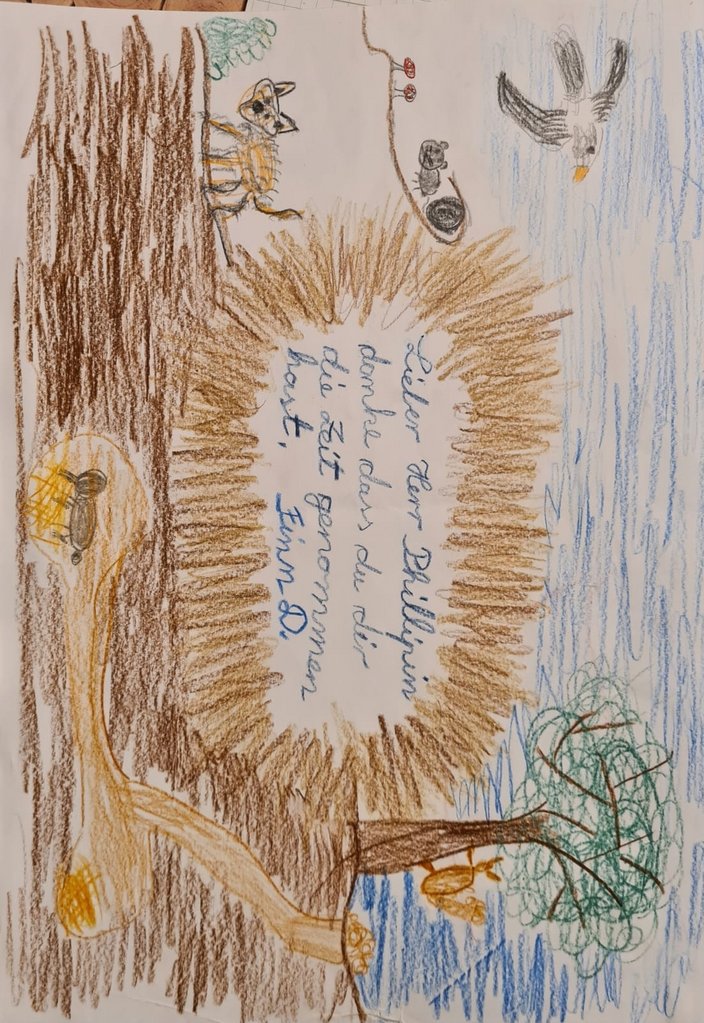 Lieber Herr Phillipin
danke dass du dir
die Zeit genommen
hast. Finn D.